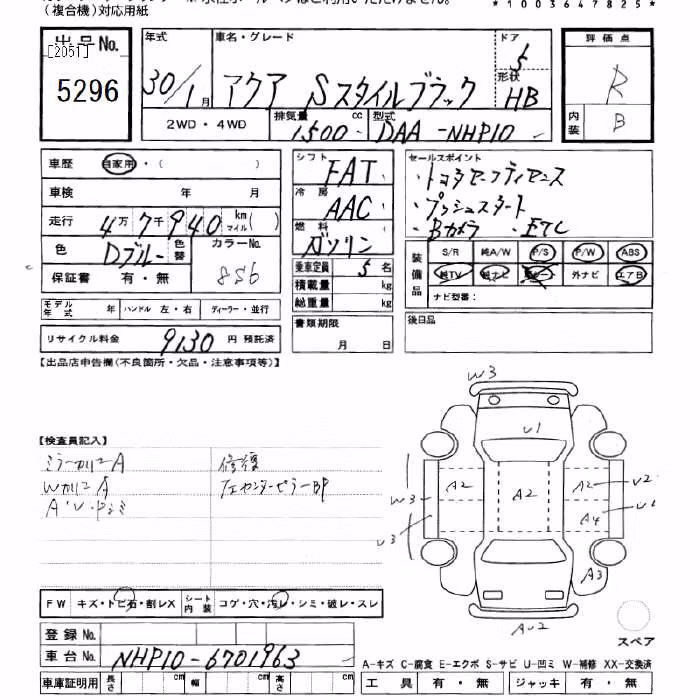 *1003647825*
(複合機)対応用紙
出品No. [2051] 5296
年式 30/1月
車名・グレード アクア Sスタイルブラック
ドア 5
形状 HB
2WD・4WD
排気量 1500 cc
型式 DAA-NHP10
評価点 R
内装 B
車歴 自家用・( )
車検 年 月
走行 4万7千940 km マイル( )
色 Dブルー 色替 カラーNo. 8S6
保証書 有・無
シフト FAT
冷房 AAC
燃料 ガソリン
乗車定員 5名
積載量 kg
総重量 kg
書類期限 月 日
セールスポイント
・トヨタセーフティセンス
・プッシュスタート
・Bカメラ ・ETC
装備品 S/R 純A/W P/S P/W ABS
純TV 純ナビ 革シート 外ナビ エアB
ナビ型番:
後日品
モデル年式 年 ハンドル 左・右 ディーラー・並行
リサイクル料金 9130 円 預託済
【出品店申告欄(不良箇所・欠品・注意事項等)】
【検査員記入】
修復
W3
U1
A2 A2 A2 U2
W3 A4 U1
U3
A3
AU2
FW キズ・トビ石・割レX シート内装 コゲ・穴・汚レ・シミ・破レ・スレ
登録No.
車台No. NHP10-6701963
車庫証明用 長さ cm 幅 cm 高さ cm
スペア
A-キズ C-腐食 E-エクボ S-サビ U-凹ミ W-補修 XX-交換済
工具 有・無 ジャッキ 有・無